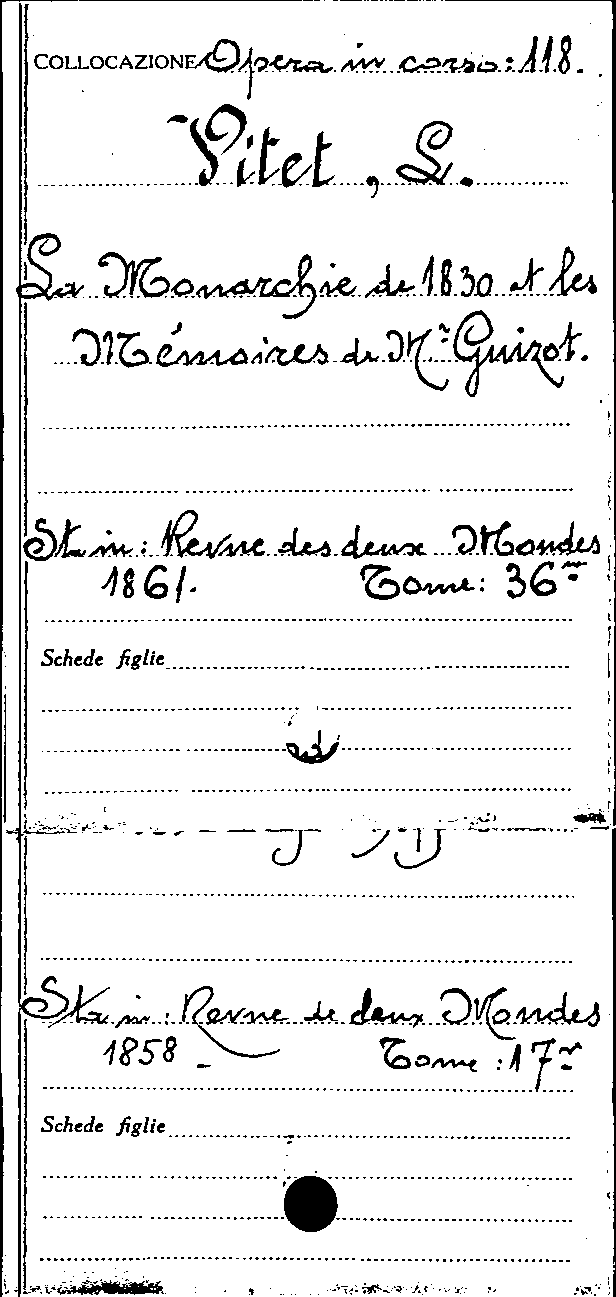 COLLOCAZIONE Opera in corso: 118.
Vitet, L.
La Monarchie de 1830 et les
Mémoires de Mr Guizot.
Sta in: Revue des deux Mondes
1861. Tome: 36me
Schede figlie
Sta in: Revue de deux Mondes
1858 Tome: 17me
Schede figlie